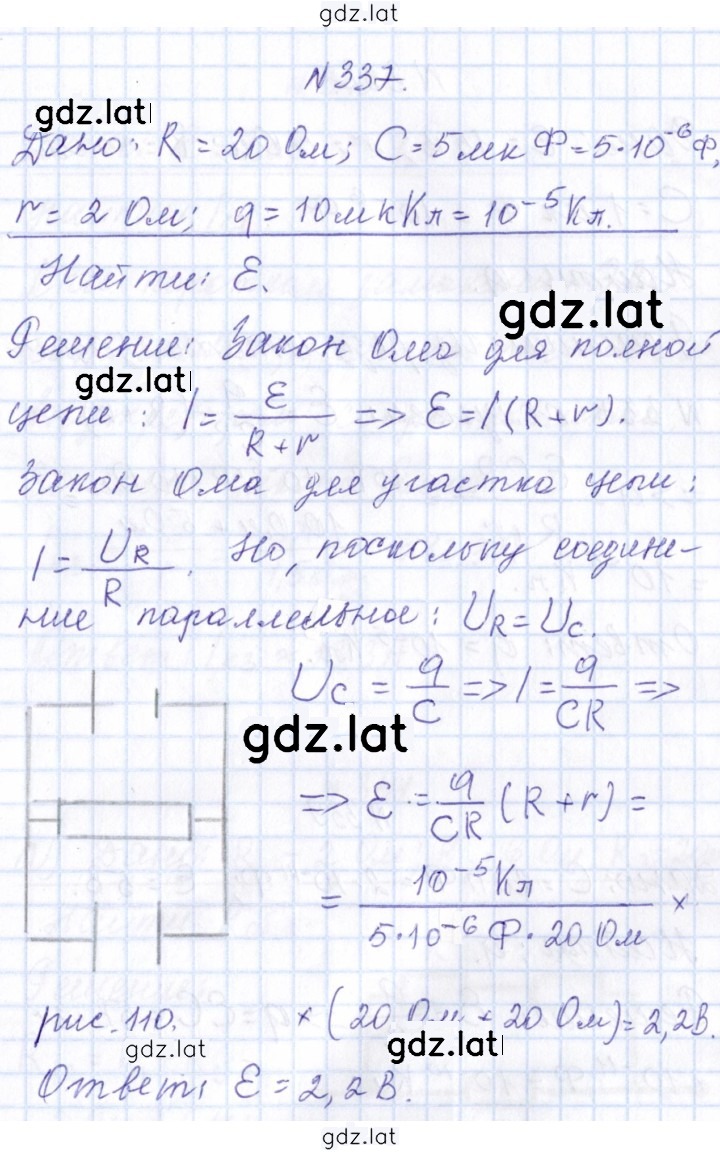 gdz.lat
N 337.
gdz.lat
Дано: R = 20 Ом; C = 5 мкФ = 5·10⁻⁶ Ф,
r = 2 Ом; q = 10 мкКл = 10⁻⁵ Кл.
Найти: ℰ.
gdz.lat
Решение: Закон Ома для полной
gdz.lat
цепи: I = ℰ/(R + r) => ℰ = I(R + r).
Закон Ома для участка цепи:
I = U_R/R. Но, поскольку соедине-
ние параллельное: U_R = U_C.
U_C = q/C => I = q/(CR) =>
gdz.lat
=> ℰ = q/(CR) (R + r) =
= 10⁻⁵ Кл/(5·10⁻⁶ Ф · 20 Ом) ×
рис. 110. × (20 Ом + 20 Ом) = 2,2 В.
gdz.lat
gdz.lat
Ответ: ℰ = 2,2 В.
gdz.lat